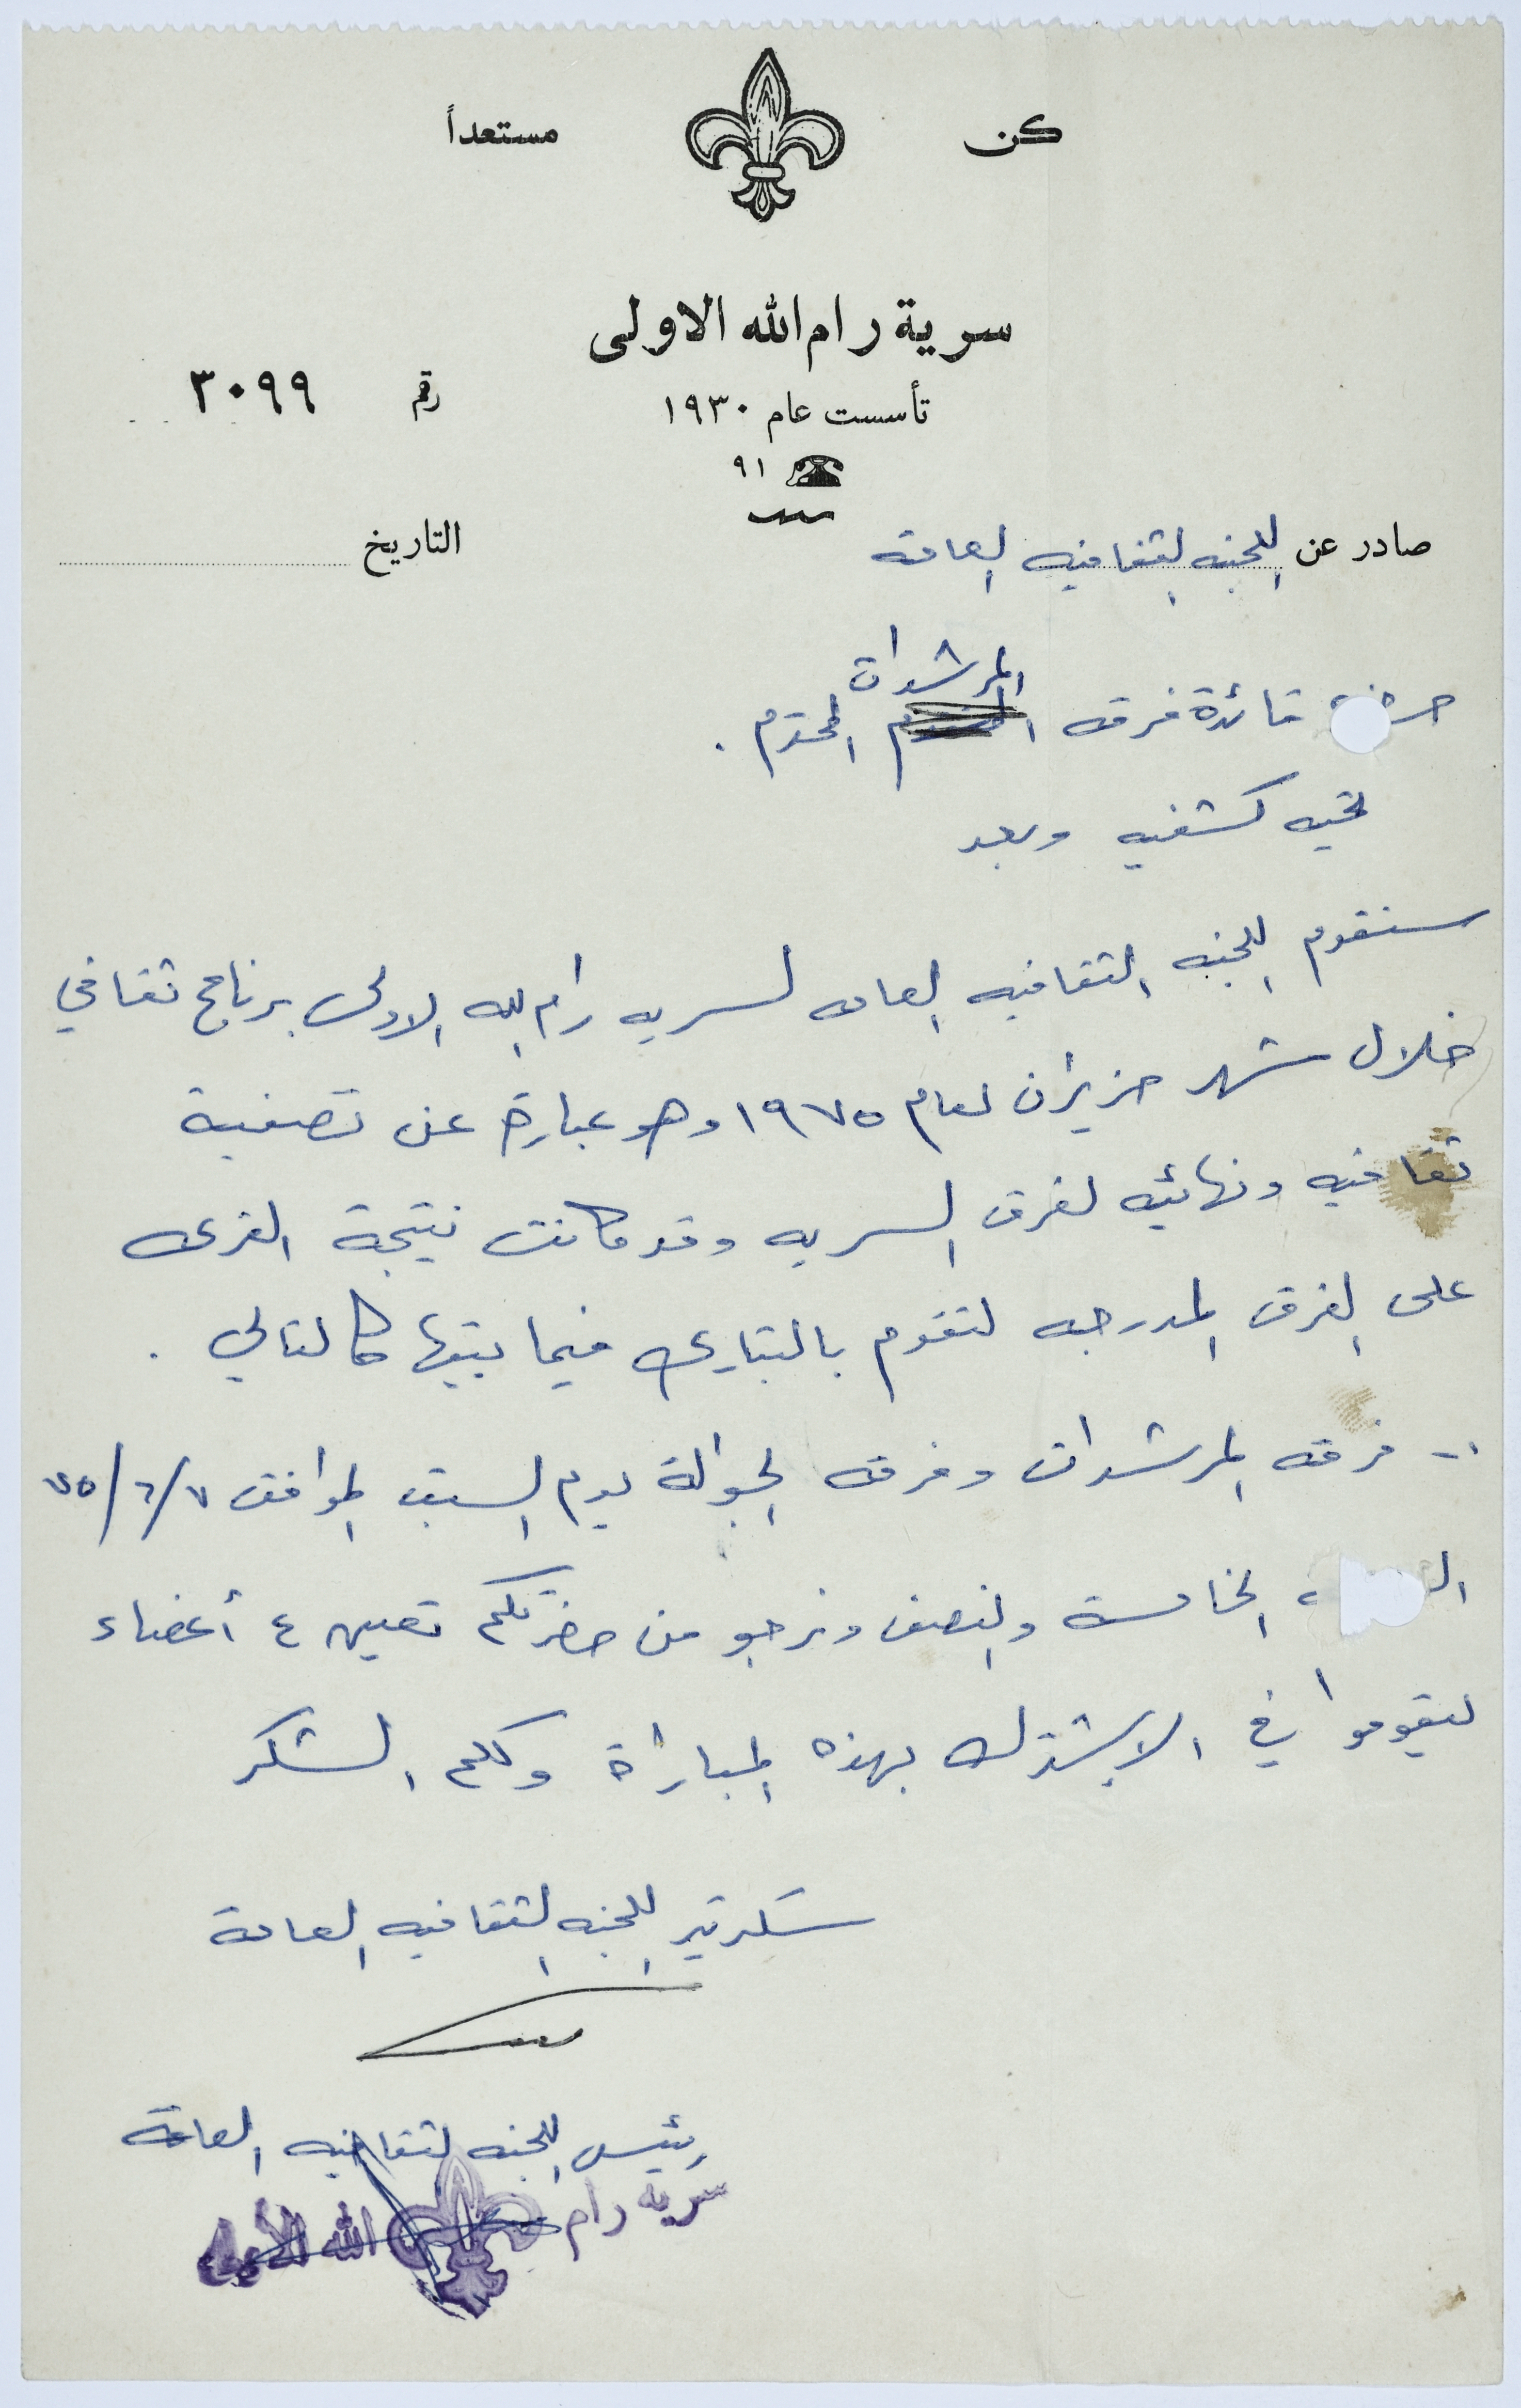 كن مستعداً
سرية رام الله الاولى
تأسست عام ١٩٣٠
رقم ٣٠٩٩
٩١
صادر عن اللجنه الثقافيه العامه
التاريخ
المرشدات
قائدة فرقه المحترم .
تحيه كشفيه وبعد
ستقوم اللجنه الثقافيه العامه لسريه رام الله الاولى برنامج ثقافي
خلال شهر حزيران لعام ١٩٧٥ وهو عبارة عن تصفية
ثقافيه ونهائيه لفرق السريه وقد كانت نتيجة القرعه
على الفرق المدرجه لتقوم بالتباري فيما بينها كالتالي .
١- فرقه المرشدات وفرقه الجوالة يوم السبت الموافق ٧/٦/٧٥
الخامسة والنصف ونرجو من حضرتكم تعيين ٤ أعضاء
ليقوموا في الاشتراك بهذه المباراة ولكم الشكر
سكرتير اللجنه الثقافيه العامة
رئيس اللجنه الثقافيه العامة
سرية رام الله الأولى